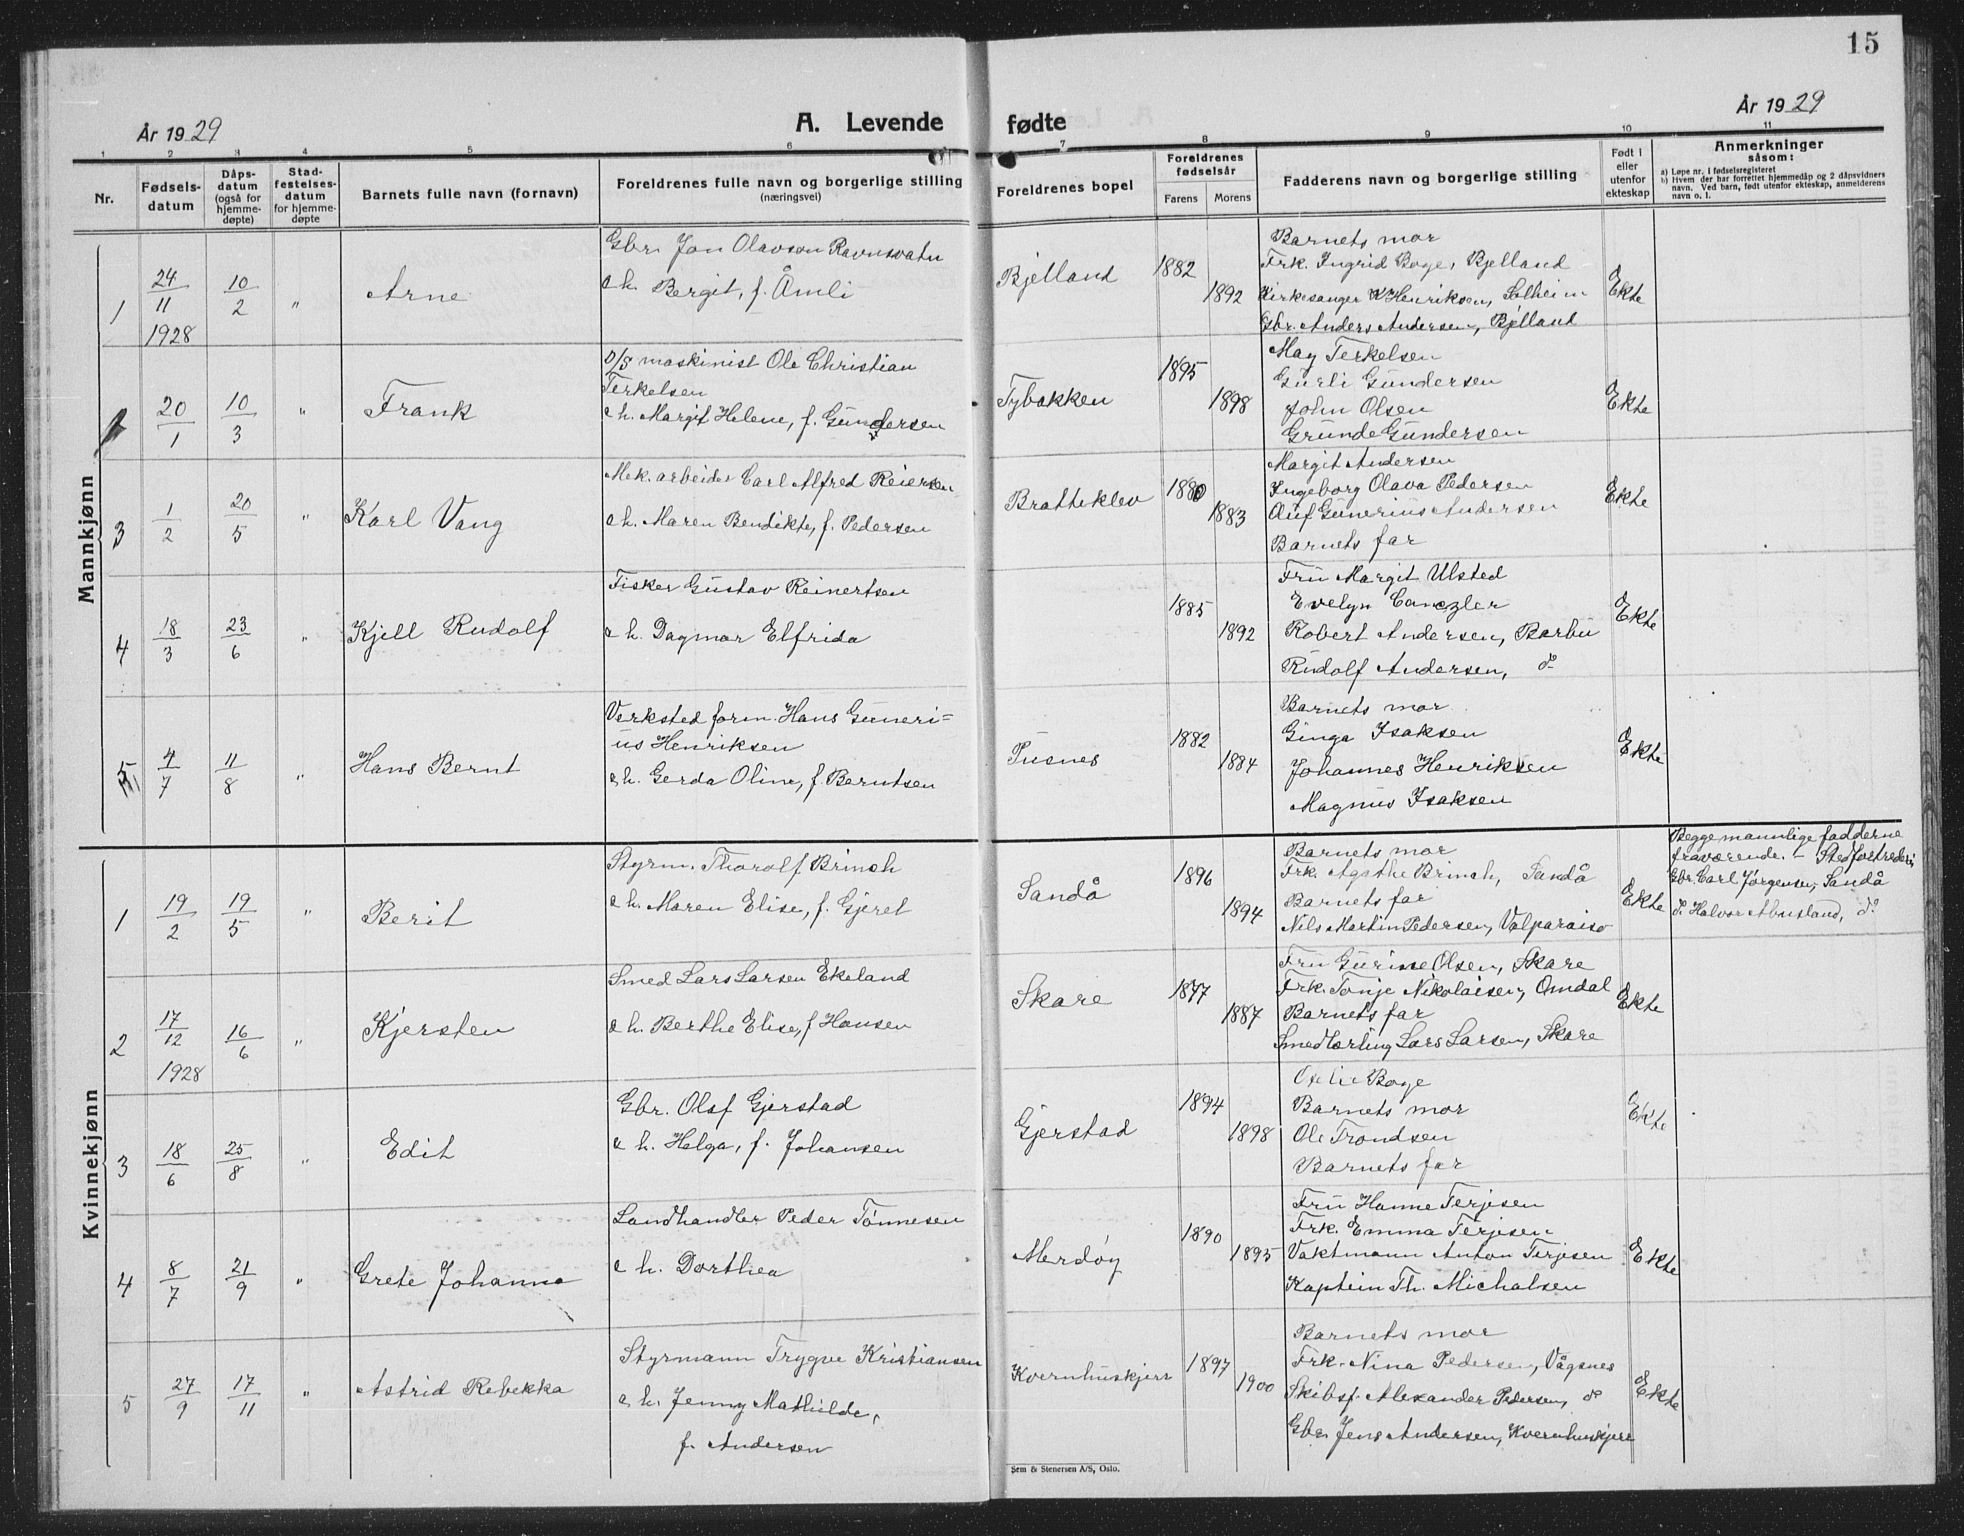 15
År 1929
A. Levende fødte
År 1929
1 2 3 4 5 6 7 8 9 10 11
Nr.
Fødselsdatum
Dåpsdatum (også for hjemmedøpte)
Stadfestelsesdatum for hjemmedøpte
Barnets fulle navn (fornavn)
Foreldrenes fulle navn og borgerlige stilling (næringsvei)
Foreldrenes bopel
Foreldrenes fødselsår
Farens Morens
Fadderens navn og borgerlige stilling
Født i eller utenfor ekteskap
Anmerkninger såsom:
a) Løpe nr. i fødselsregisteret
b) Hvem der har forrettet hjemmedåp og 2 dåpsvidners navn. Ved barn, født utenfor ekteskap, anmelderens navn o. l.
Mannkjønn
1 24/11 1928 10/2 " Arne
Gbr. Jon Olavson Ravnsvatn
e h. Bergit, f. Åmli
Bjelland 1882 1892
Barnets mor
Frk. Ingrid Boge, Bjelland
Kirkesanger K Henriksen, Solheim
Gbr. Anders Andersen, Bjelland
Ekte
20/1 10/3 " Frank
D/S maskinist Ole Christian
Terkelsen
e h. Margit Helene, f. Gundersen
Tybakken 1895 1898
May Terkelsen
Gurli Gundersen
John Olsen
Grunde Gundersen
Ekte
3 1/2 20/5 " Karl Vang
Mek. arbeider Carl Alfred Reiersen
e h. Maren Bendikte, f. Pedersen
Bratteklev 1880 1883
Margit Andersen
Ingeborg Olava Pedersen
Oluf Gunerius Andersen
Barnets far
Ekte
4 18/3 23/6 " Kjell Rudolf
Fisker Gustav Reinertsen
e h. Dagmar Elfrida
1885 1892
Fru Margit Ulsted
Evelyn Canczler
Robert Andersen, Barbu
Rudolf Andersen, do
Ekte
5 4/7 11/8 " Hans Bernt
Verksted form. Hans Guneri=
us Henriksen
e h. Gerda Oline, f. Berntsen
Pusnes 1882 1884
Barnets mor
Ginga Isaksen
Johannes Henriksen
Magnus Isaksen
Ekte
Kvinnekjønn
1 19/2 19/5 " Berit
Styrm. Thorolf Brinch
e h. Maren Elise, f. Gjeret
Sandå 1896 1894
Barnets mor
Frk. Agathe Brinch, Sandå
Barnets far
Nils Martin Pedersen, Valparaiso
Ekte
Begge mannlige fadderne
fraværende. -
Gbr. Carl Jørgensen, Sandå
Halvor do
2 17/12 1928 16/6 " Kjersten
Smed Lars Larsen Ekeland
e h. Berthe Elise, f Hansen
Skare 1877 1887
Fru Gurine Olsen, Skare
Frk. Tonje Nikolaisen, Omdal
Barnets far
Smedlærling Lars Larsen, Skare
Ekte
3 18/6 25/8 " Edit
Gbr. Olaf Gjerstad
e h. Helga, f. Johansen
Gjerstad 1894 1898
Boge
Barnets mor
Ole Trondsen
Barnets far
Ekte
4 8/7 21/9 " Grete Johanna
Landhandler Peder Tønnesen
e h. Dorthea
Merdøy 1890 1895
Fru Hanne Terjesen
Frk. Emma Terjesen
Vaktmann Anton Terjesen
Kaptein Th. Michalsen
Ekte
5 27/9 17/11 " Astrid Rebekka
Styrmann Trygve Kristiansen
e h. Jenny Mathilde,
f. Andersen
Kvernhuskjerr 1897 1900
Barnets mor
Frk. Nina Pedersen, Vågsnes
Skibsf. Alexander Pedersen, do
Gbr. Jens Andersen, Kvernhuskjerr
Ekte
Sem & Stenersen A/S, Oslo.